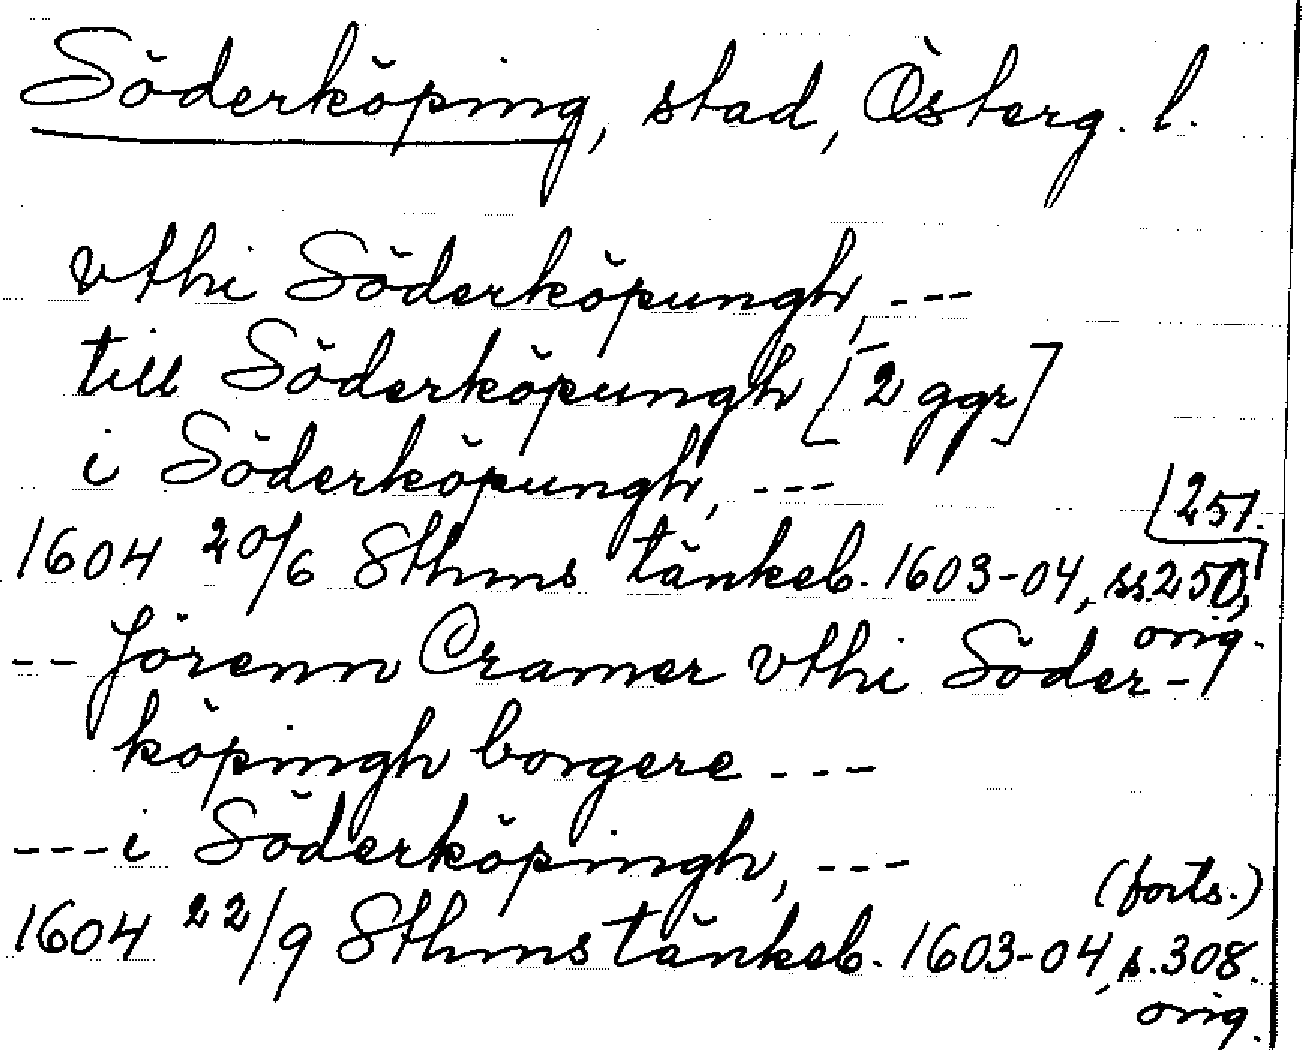 Söderköping, stad, Österg. l.
vthi Söderköpungh, ---
till Söderköpungh [2 ggr]
i Söderköpungh, ---
1604 20/6 Sthms tänkeb. 1603-04, ss. 250, 251.
orig.
-- Jörenn Cramer vthi Söder-
köpingh borgere ---
--- i Söderköpingh, ---
(forts.)
1604 22/9 Sthms tänkeb. 1603-04, s. 308.
orig.